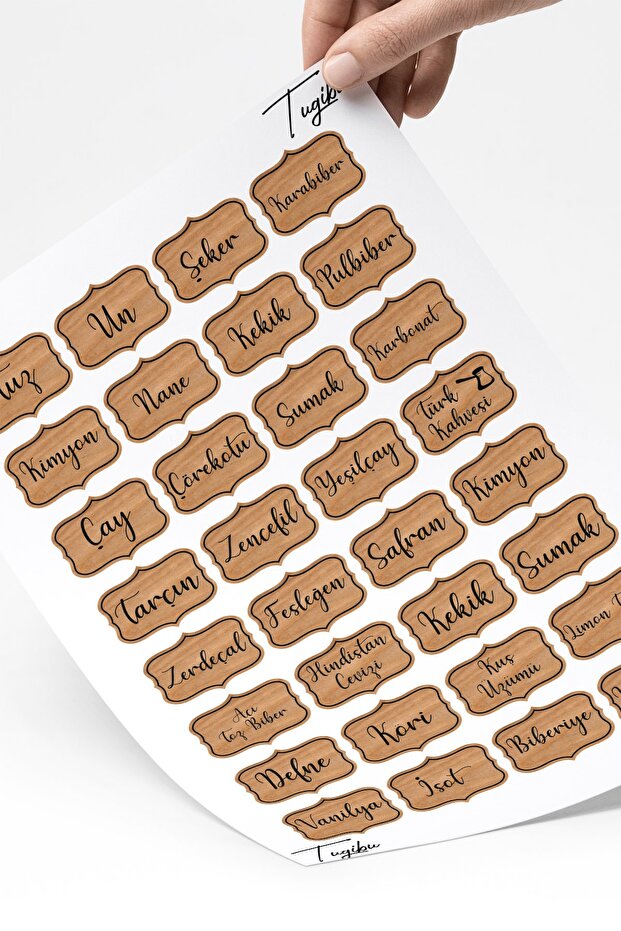 Tugibu
Tuz
Un
Şeker
Karabiber
Kimyon
Nane
Kekik
Pulbiber
Çay
Çörekotu
Sumak
Karbonat
Tarçın
Zencefil
Yeşilçay
Türk
Kahvesi
Zerdeçal
Fesleğen
Safran
Kimyon
Acı
Toz Biber
Hindistan
Cevizi
Kekik
Sumak
Defne
Kori
Kuş
Üzümü
Limon
Vanilya
İsot
Biberiye
Tugibu